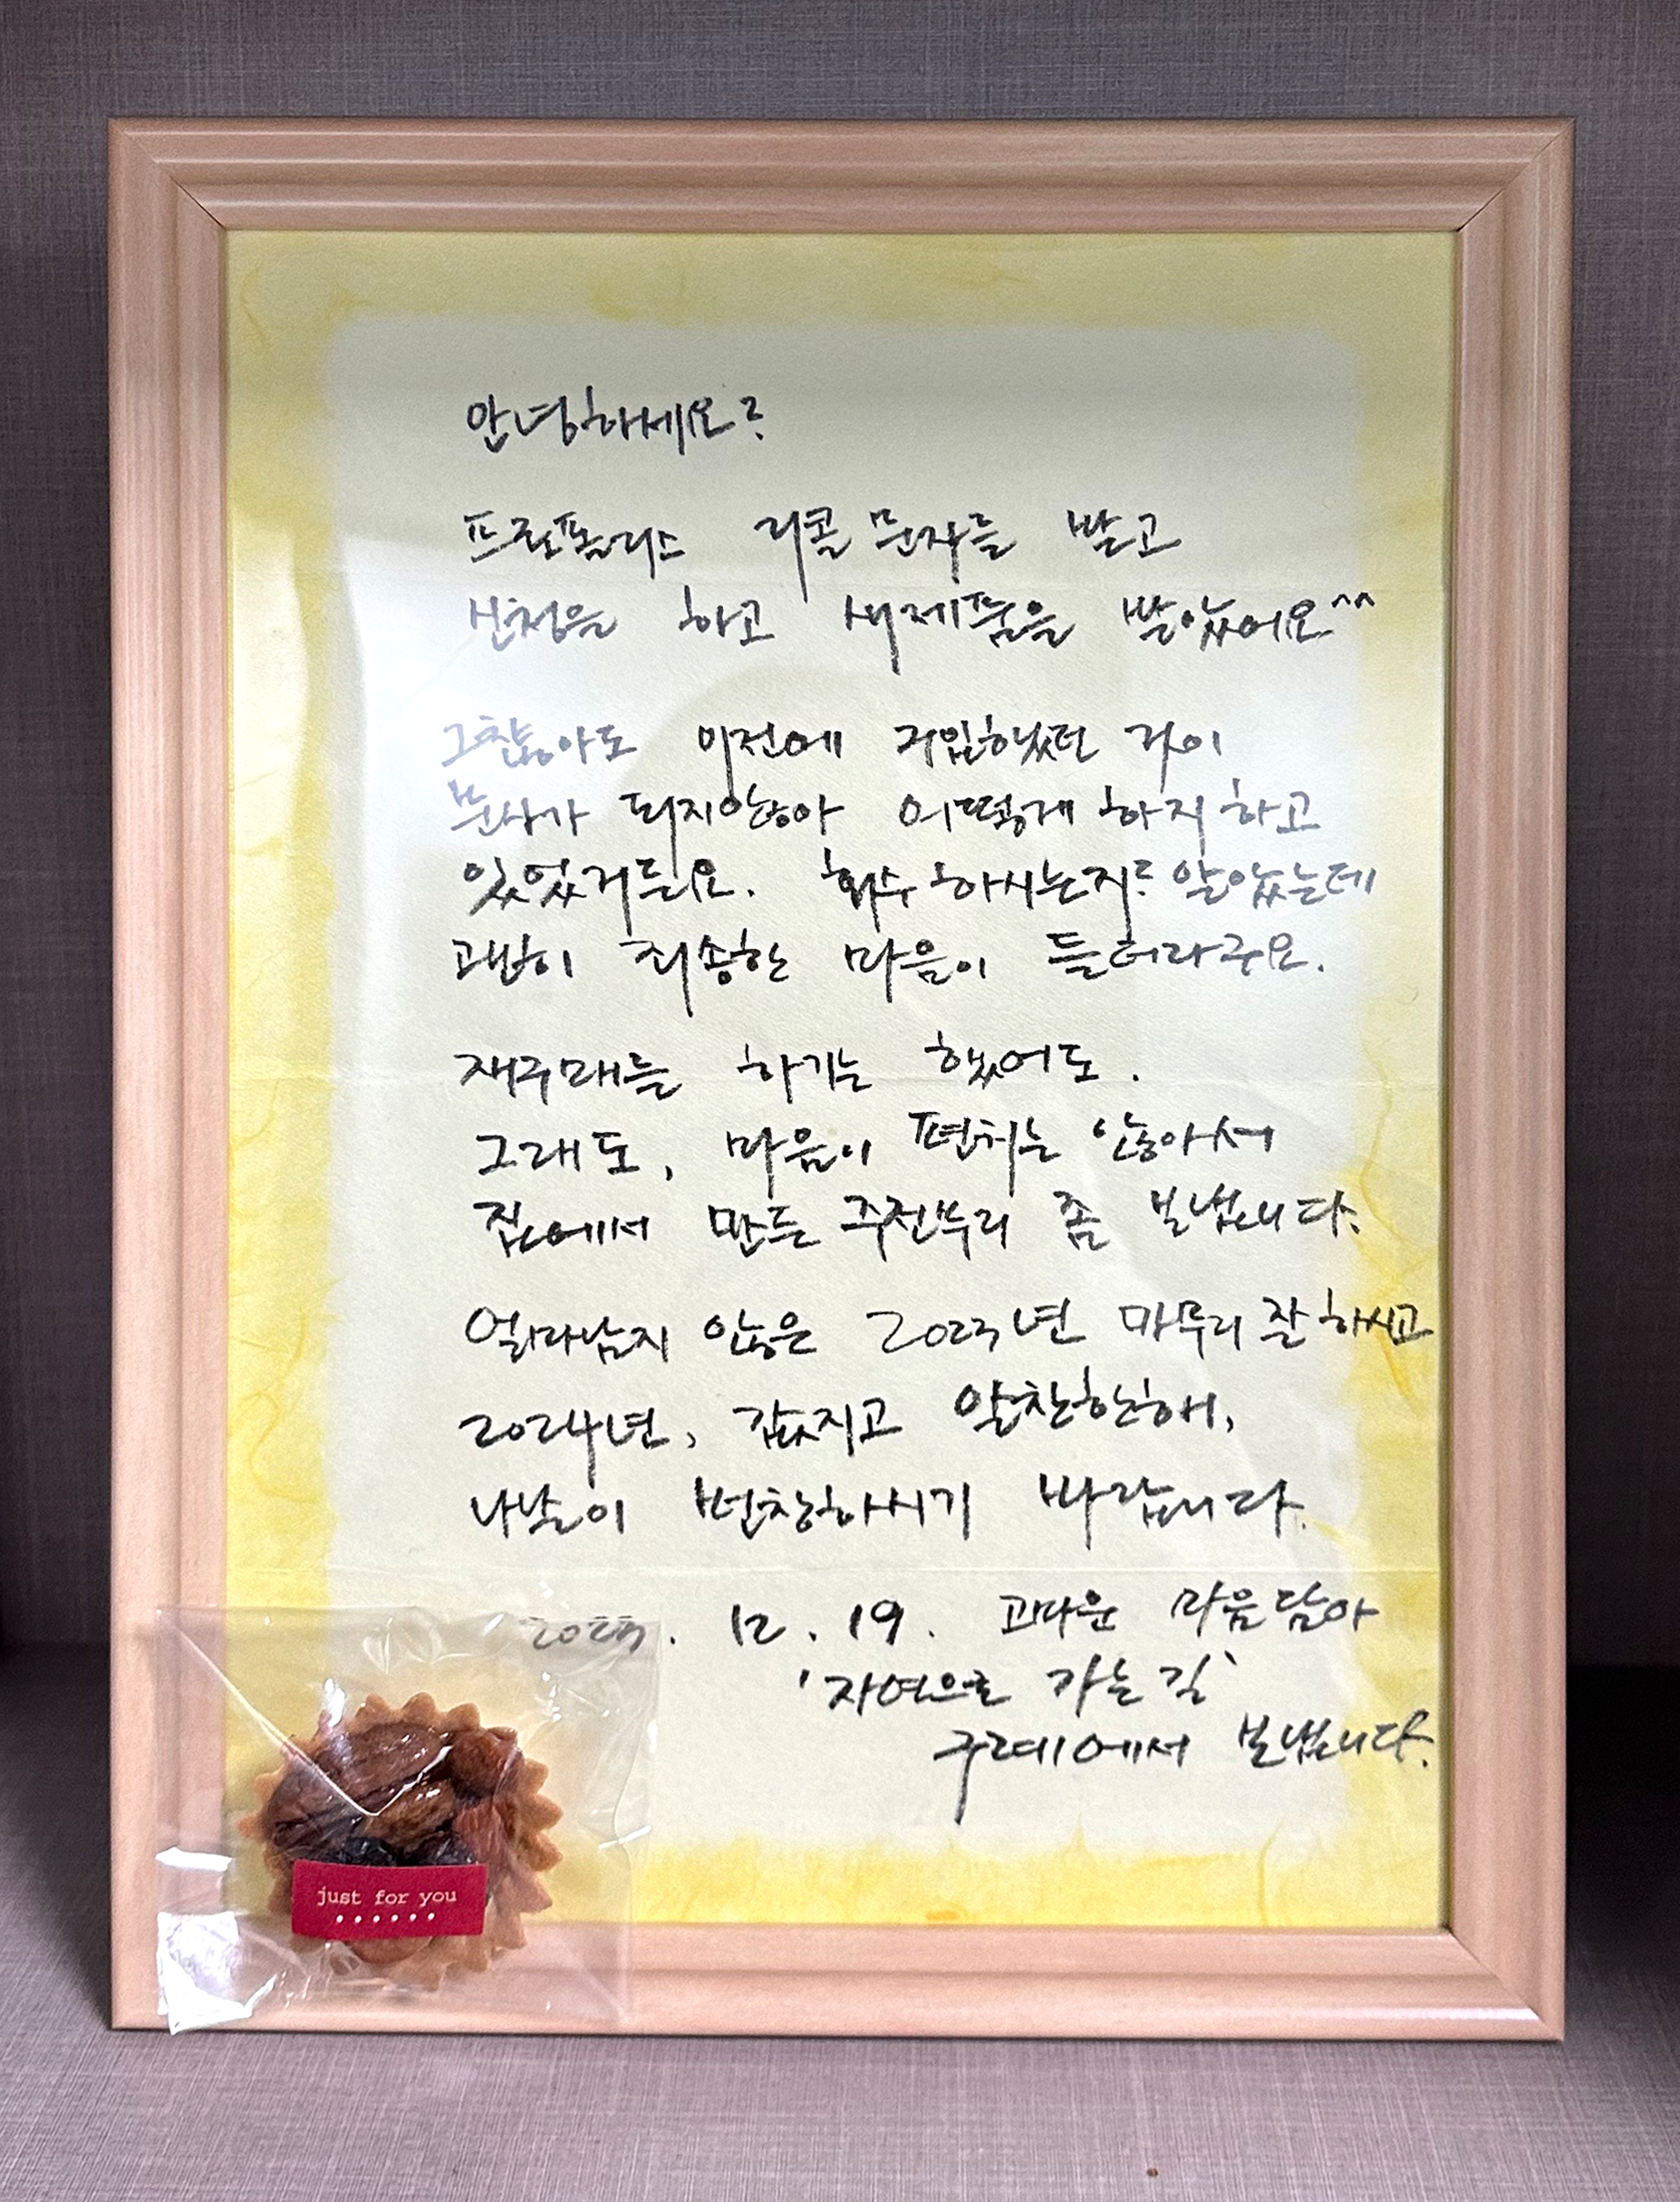 안녕하세요?
프로폴리스 리콜 문자를 받고
신청을 하고 새제품을 받았어요^^
그찮아도 이전에 구입했던 것이
분사가 되지않아 어떻게 하지 하고
있었거든요. 회수하시는지는 알았는데
괜히 죄송한 마음이 들더라구요.
재구매를 하기는 했어도.
그래도, 마음이 편치는 않아서
집에서 만든 주전부리 좀 보냅니다.
얼마남지 않은 2023년 마무리 잘 하시고
2024년, 값지고 알찬한해,
나날이 번창하시기 바랍니다.
2023. 12. 19. 고마운 마음담아
'자연으로 가는 길'
구례에서 보냅니다.
just for you